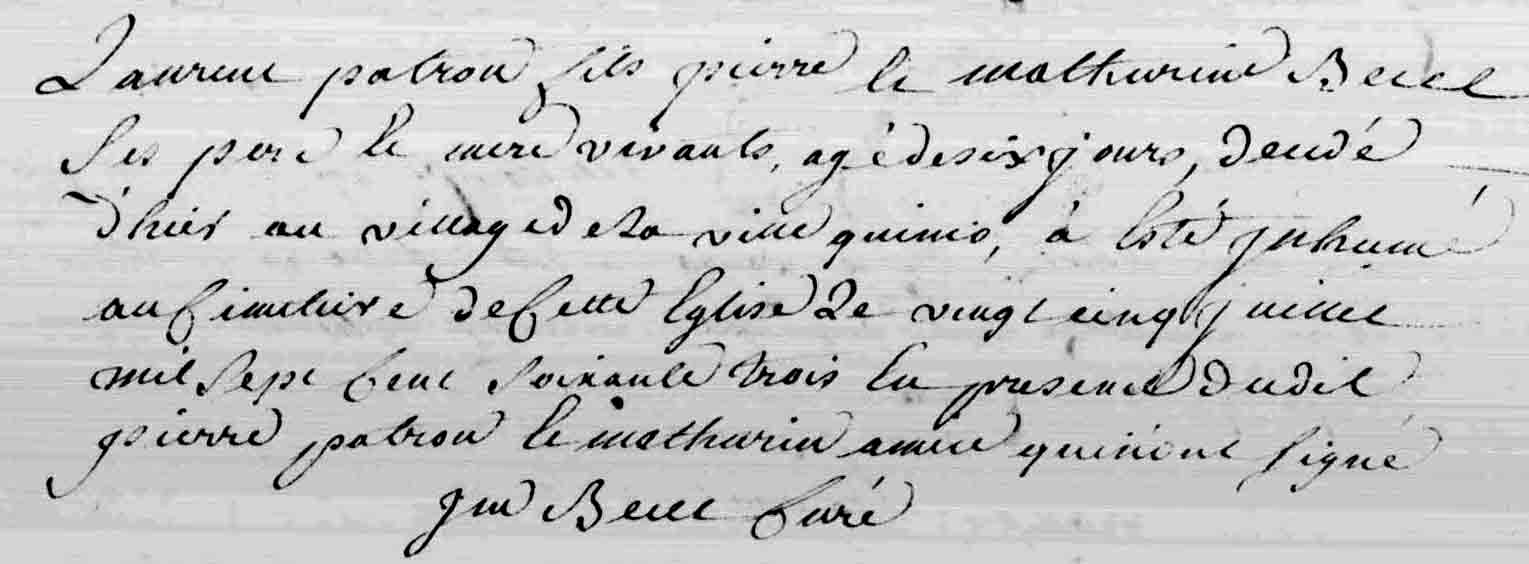 Laurent patron fils pierre et mathurine Becel
ses pere et mere vivants, agé de six jours, decedé
d'hier au village de la ville quinio, à esté inhumé
au Cimetiere de Cette Eglise Le vingt cinq juillet
mil sept Cent soixante trois En presence dudit
pierre patron et mathurin qui n'ont signé
Becel Curé